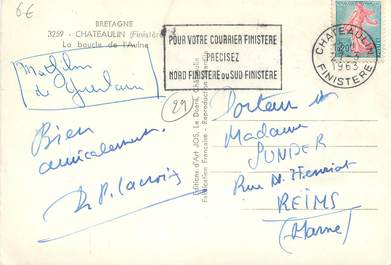 6€
BRETAGNE
3259 - CHATEAULIN (Finistère)
La boucle de l'Aulne
POUR VOTRE COURRIER FINISTERE
PRECISEZ
NORD FINISTERE OU SUD FINISTERE
CHATEAULIN
1963
FINISTERE
de Guerlain
29
Bien
amicalement.
Lacroix
Editions d'Art JOS, Le Doaré, Châteaulin
Fabrication Française - Reproduction interdite
Docteur et
Madame
SUNDER
Rue
REIMS
(Marne)